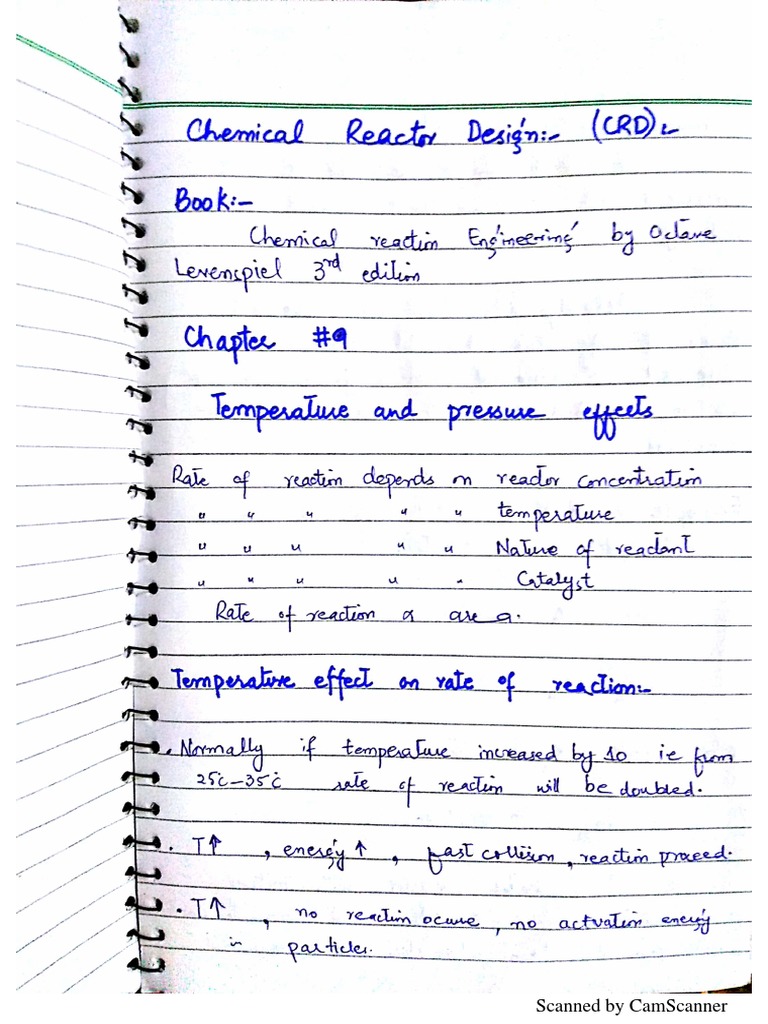 Chemical Reactor Design:- (CRD):-
Book:-
Chemical reaction Engineering by Octave
Levenspiel 3rd edition
Chapter #9
Temperature and pressure effects
Rate of reaction depends on reactor concentration
" " " " " temperature
" " " " " Nature of reactant
" " " " " Catalyst
Rate of reaction α area.
Temperature effect on rate of reaction:-
. Normally if temperature increased by 10 ie from
25°C-35°C rate of reaction will be doubled.
. T↑ , energy ↑ , fast collision , reaction proceed.
. T↑ , no reaction ocure , no actvation energy
in particles.
Scanned by CamScanner